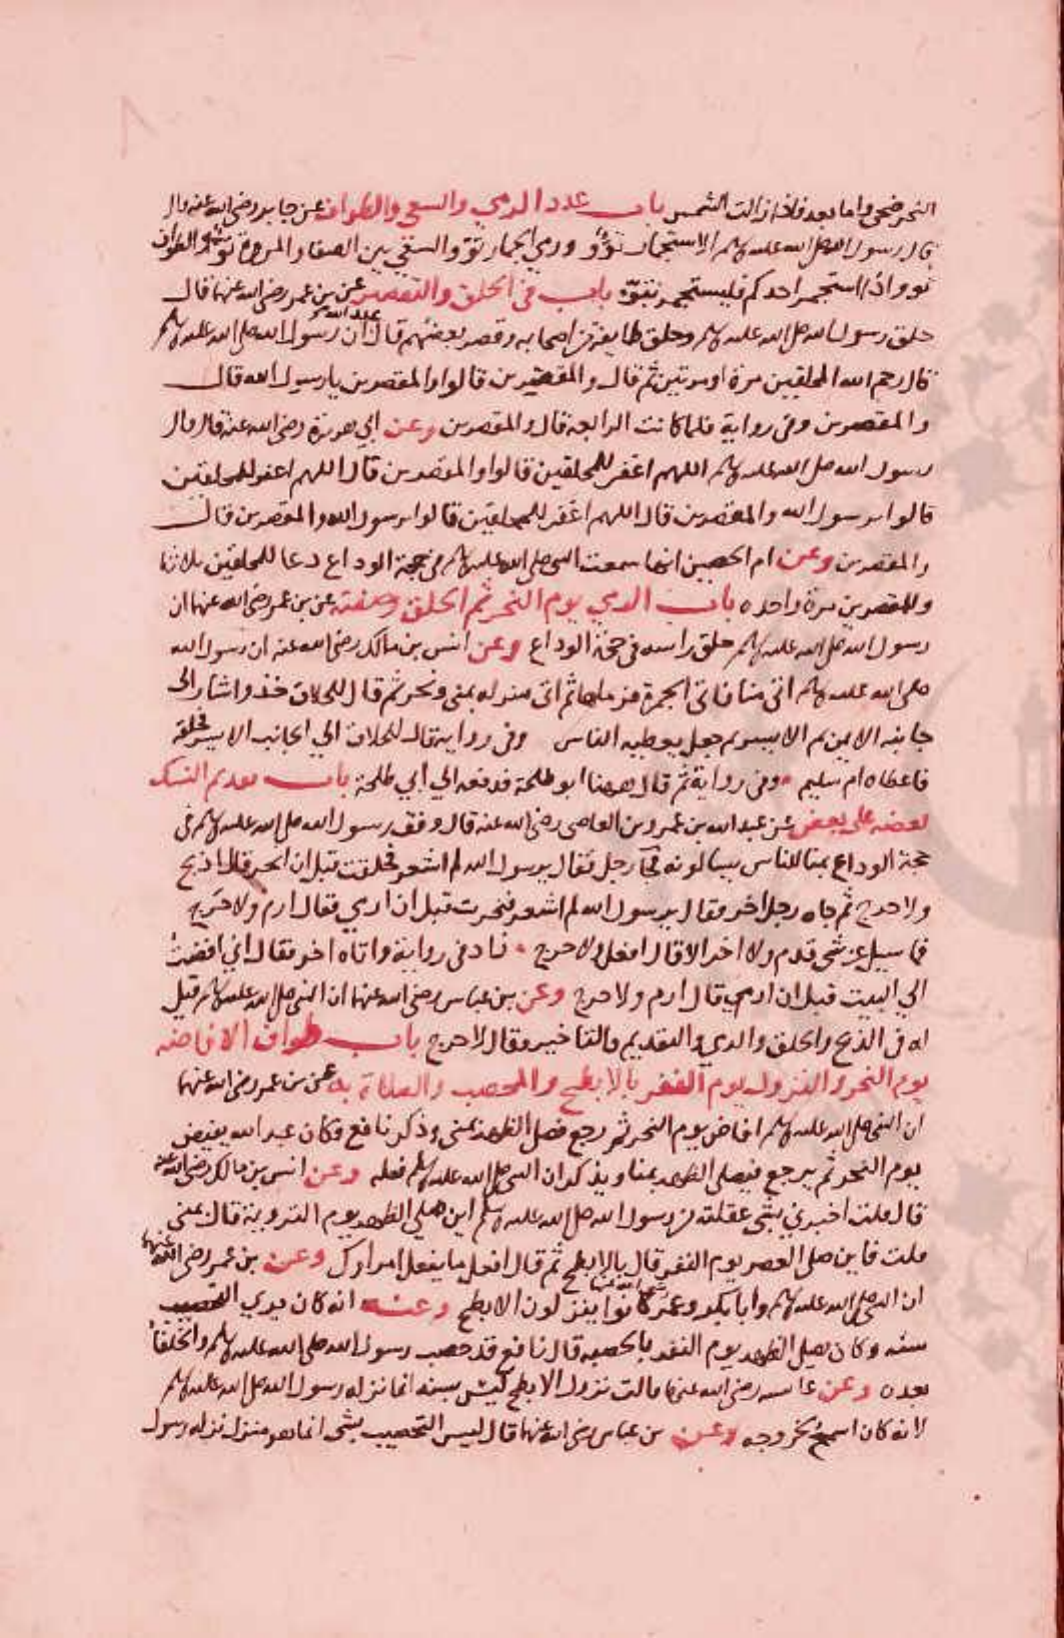 النحر ضحى واما بعد فاذا زالت الشمس باب عدد الرمي والسعي والطواف عن جابر رضي الله عنه قال
قال رسول الله صلى الله عليه وسلم الاستجمار تو ورمي الجمار تو والسعي بين الصفا والمروة تو والطواف
تو واذا استجمر احدكم فليستجمر بتو باب في الحلق والتقصير عن بن عمر رضي الله عنهما قال
حلق رسول الله صلى الله عليه وسلم وحلق طايفة من اصحابه وقصر بعضهم قال عبد الله ان رسول الله صلى الله عليه وسلم
قال رحم الله المحلقين مرة او مرتين ثم قال والمقصرين قالوا والمقصرين يا رسول الله قال
والمقصرين وفي رواية فلما كانت الرابعة قال والمقصرين وعن ابي هريرة رضي الله عنه قال قال
رسول الله صلى الله عليه وسلم اللهم اغفر للمحلقين قالوا والمقصرين قال اللهم اغفر للمحلقين
قالوا يرسول الله والمقصرين قال اللهم اغفر للمحلقين قالوا يرسول الله والمقصرين قال
والمقصرين وعن ام الحصين انها سمعت النبي صلى الله عليه وسلم في حجة الوداع دعا للمحلقين ثلاثا
وللمقصرين مرة واحده باب الرمي يوم النحر ثم الحلق وصفته عن بن عمر رضي الله عنهما ان
رسول الله صلى الله عليه وسلم حلق راسه في حجة الوداع وعن انس بن مالك رضي الله عنه ان رسول الله
صلى الله عليه وسلم اتى منا فاتى الجمرة فرماها ثم اتى منزله بمنى ونحر ثم قال للحلاق خذ واشار الى
جانبه الايمن ثم الايسر ثم جعل يعطيه الناس وفي رواية قال للحلاق الي الجانب الايسر فحلقه
فاعطاه ام سليم وفي رواية ثم قال ههنا ابو طلحة فدفعه الي ابي طلحة باب تقديم النسك
بعضه على بعض عن عبد الله بن عمرو بن العاصي رضي الله عنه قال وقف رسول الله صلى الله عليه وسلم في
حجة الوداع بمنا للناس يسالونه فجا رجل فقال يرسول الله لم اشعر فحلقت قبل ان انحر فقال اذبح
ولا حرج ثم جاه رجل اخر فقال يرسول الله لم اشعر فنحرت قبل ان ارمي فقال ارم ولا حرج
فما سيل عن شى قدم ولا اخر الا قال افعل ولا حرج زاد في رواية واتاه اخر فقال اني افضت
الي البيت قبل ان ارمي قال ارم ولا حرج وعن بن عباس رضي الله عنهما ان النبي صلى الله عليه وسلم قيل
له في الذبح والحلق والرمي والتقديم والتاخير فقال لا حرج باب طواف الافاضه
يوم النحر والنزول يوم النفر بالابطح والمحصب والصلاة به عن بن عمر رضي الله عنهما
ان النبي صلى الله عليه وسلم افاض يوم النحر ثم رجع فصل الظهر بمنى وذكر نافع فكان عبد الله يفيض
يوم النحر ثم يرجع فيصلي الظهر بمنا ويذكر ان النبي صلى الله عليه وسلم فعله وعن انس بن مالك رضي الله عنه
قال قلت اخبرني بشى عقلته من رسول الله صلى الله عليه وسلم اين صلي الظهر يوم التروية قال بمنى
قلت فاين صلى العصر يوم النفر قال بالابطح ثم قال افعل ما يفعل امراوك وعن بن عمر رضي الله عنهما
ان النبي صلى الله عليه وسلم وابا بكر وعمر رضي الله عنهما كانوا ينزلون الابطح وعنه انه كان يري التحصيب
سنه وكان يصلي الظهر يوم النفر بالحصبه قال نافع قد حصب رسول الله صلى الله عليه وسلم والخلفا
بعده وعن عايشه رضي الله عنها قالت نزول الابطح ليس بسنه انما نزله رسول الله صلى الله عليه وسلم
لانه كان اسمح لخروجه وعن بن عباس رضي الله عنهما قال ليس التحصيب بشى انما هو منزل نزله رسول